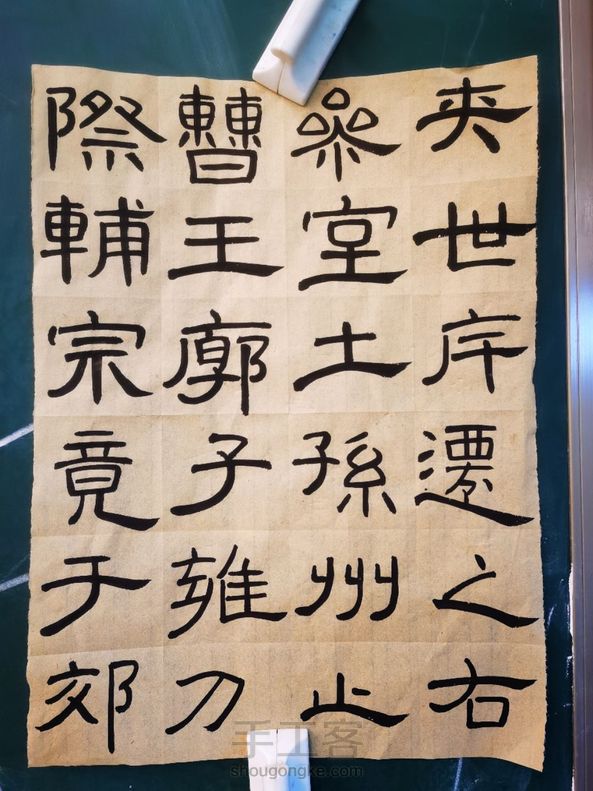 際曹參夾
輔王室世
宗廓土斥
竟子孫遷
于雍州之
郊刀止右
手工客
shougongke.com